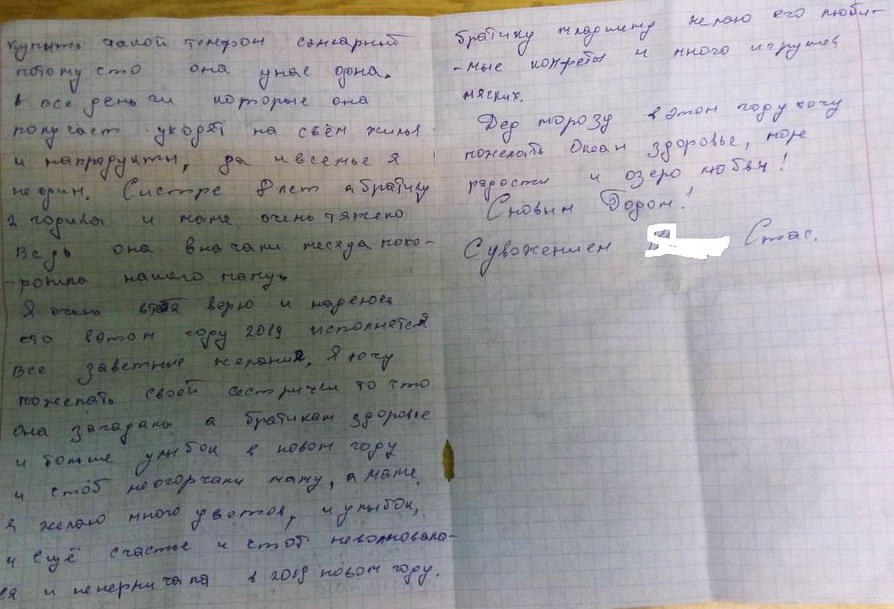 купить такой телефон сенсарный
потому сто она унас одна.
А все деньги которые она
получает уходят на сьём жилья
и напрадукты, да ивсемье я
неодин. Систре 8 лет абратику
2 годика и маме очень тяжело
Ведь она вначале месяца похо-
-ронила нашего папу.
Я очень верю и надеюсь
сто вэтом году 2019 исполнется
все заветные желания, Я хочу
пожелать своей сестричке то что
она загадала а братикам здоровье
и больше улыбок в новом году
и стоб неогорчали маму, а маме
я желаю много цветов, и улыбок,
и ещё счастье и стоб неволновала-
ся и ненервничала в 2019 новом году.
братику младшему желаю его люби-
-мые конфеты и много игрушек
мяских.
Дед морозу вэтом году хочу
пожелать Океан здоровье, море
радости и озеро любви!
Сновым Годом!
Суважением Стас.